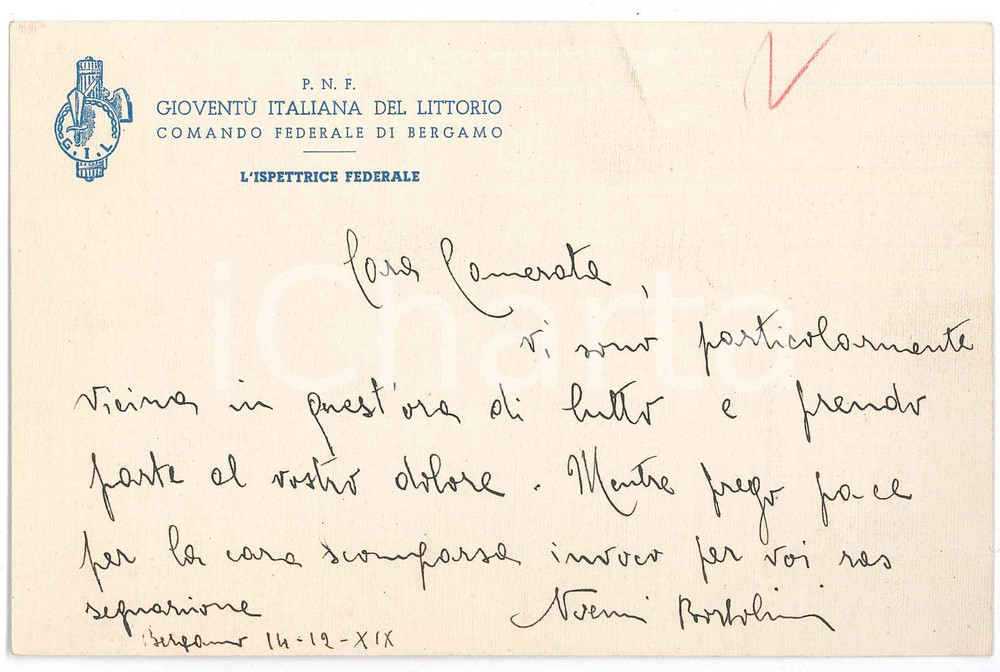 P. N. F.
GIOVENTÙ ITALIANA DEL LITTORIO
COMANDO FEDERALE DI BERGAMO
L'ISPETTRICE FEDERALE
G.I.L
Cara Camerata,
vi sono particolarmente
vicina in quest'ora di lutto e prendo
parte al vostro dolore. Mentre prego pace
per la cara scomparsa invoco per voi ras
segnazione
Noemi Bortolini
Bergamo 14-12-XIX
iCharta